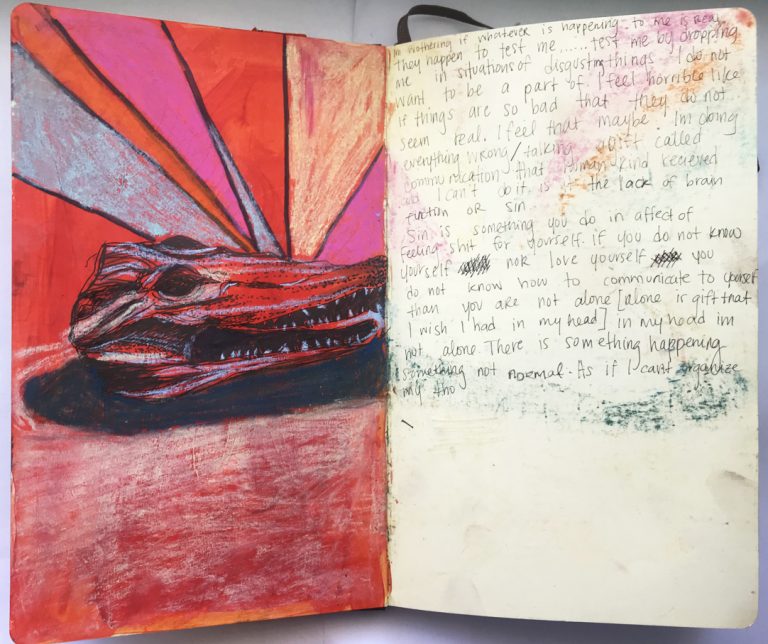 Im wothering if whatever is happening to me is real
they happen to test me......test me by dropping
me in situations of disgusting things I do not
want to be a part of. I feel horrible like
if things are so bad that they do not
seem real. I feel that maybe Im doing
everything wrong/talking a gift called
communication that Human kind recieved
and I can't do it, is it the lack of brain
function OR sin
Sin is something you do in affect of
feeling shit for yourself. if you do not know
yourself nor love yourself you
do not know how to communicate to yourself
than you are not alone [alone is gift that
I wish I had in my head] in my head im
not alone. There is something happening
something not NORMAL. As if I cant organize
my tho